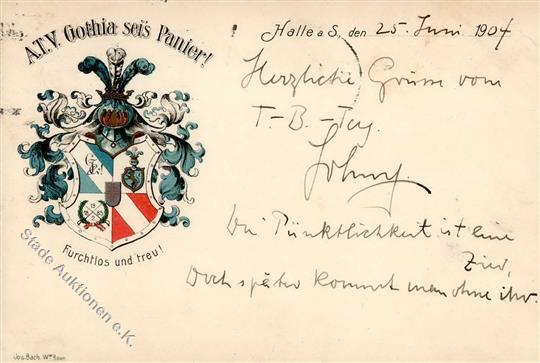 A.T.V. Gothia sei's Panier!
Halle a S., den 25. Juni 1904
Herzliche Grüsse vom
T.-B.-Tey.
Johny.
Die Pünktlichkeit ist eine
Zier,
Doch später kommt man ohne ihr.
Furchtlos und treu!
Stade Auktionen e.K.
Jos. Bach. Wwe Bonn